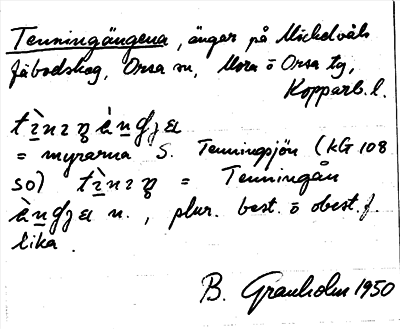 Tenningängena, ängar på Mickelvåls
fäbodskog, Orsa sn, Mora o Orsa tg,
Kopparb. l.
= myrarna S. Tenningsjön (KG 108
so) = Tenningån
n., plur. best. o obest. f.
lika.
B. Granholm 1950